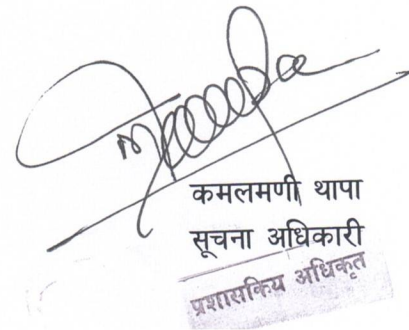 कमलमणी थापा
सूचना अधिकारी
प्रशासकिय अधिकृत